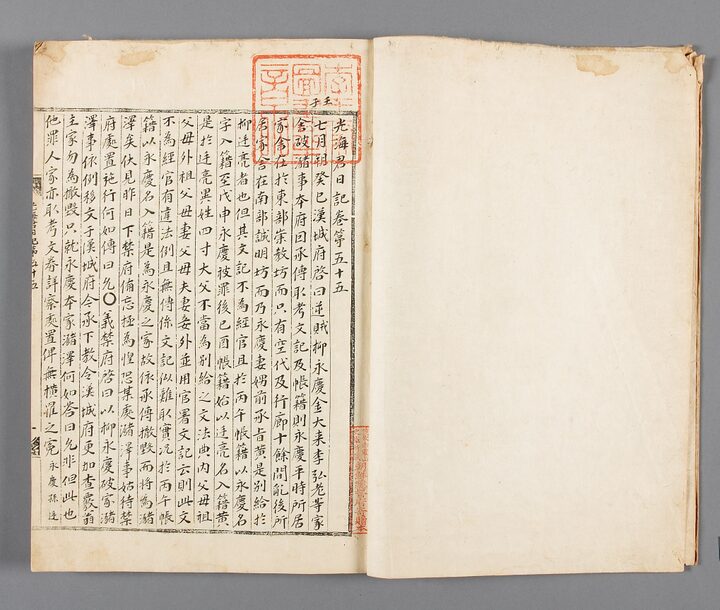 光海君日記卷第五十五
壬子
七月朔癸巳漢城府啓曰逆賊柳永慶金大來李弘老等家
舍破瀦事本府因承傳取考文記及帳籍則永慶平時所居
家舍在於東部崇敎坊而只有空代及行廊十餘間亂後所
居家舍在南部誠明坊而乃永慶妻娚前承旨黃是別給於
柳廷亮者也但其文記不爲經官且於丙午帳籍以永慶名
字入籍至戊申永慶被罪後己酉帳籍始以廷亮名入籍黃
是於廷亮異姓四寸大父不當爲別給之文法典內父母祖
父母外祖父母妻父母夫妻妾外並用官署文記云則此文
不爲經官有違法例且無傳係文記似難取實況於丙午帳
籍以永慶名入籍是爲永慶之家故依承傳撤毀而將爲瀦
澤矣伏見昨日下禁府備忘極爲惶恐某處瀦澤事姑待禁
府處置施行何如傳曰允○義禁府啓曰以柳永慶破家瀦
澤事依例移文于漢城府今承下敎令漢城府更加查覈翁
主家勿爲撤毀只就永慶本家瀦澤何如答曰允非但此也
他罪人家亦取考文券詳察處置俾無橫罹之冤永慶孫廷